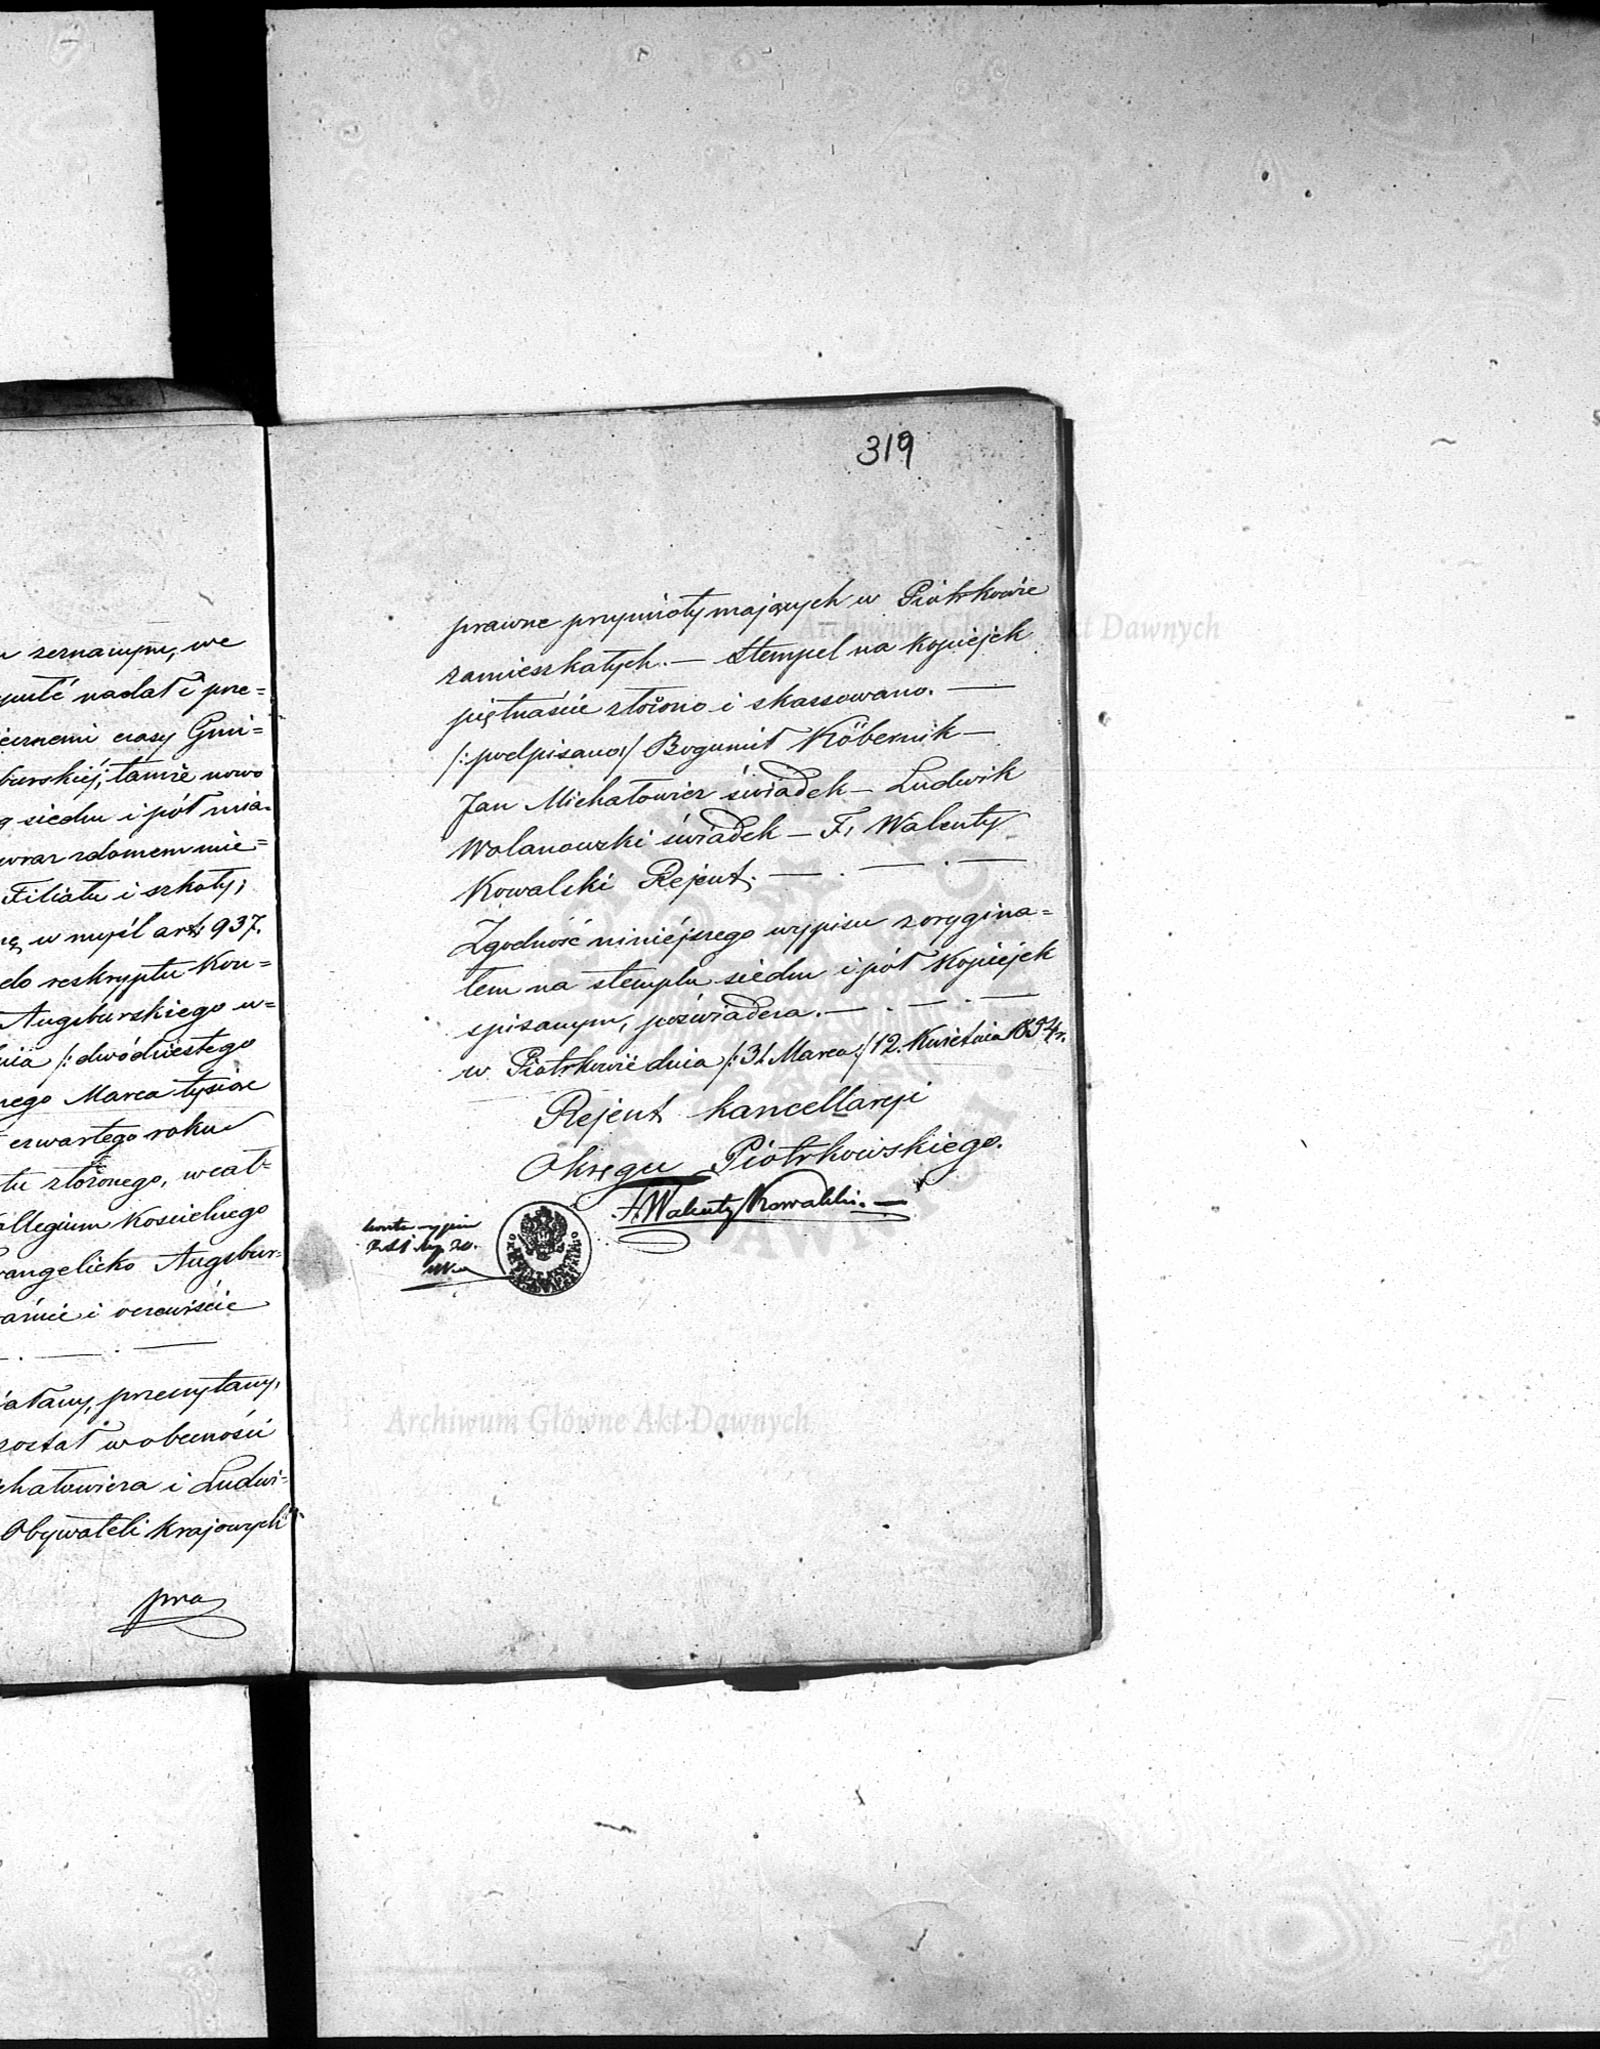 zeznanym, we
nadał i prze=
czasy Gmi=
burskiéj, tamże nowo
siedm i pół mia=
wraz z domem mie=
Filiału i szkoły;
w myśl art: 937.
do reskryptu Kon=
Augsburskiego w=
dnia /: dwódziestego
Marca tysiąc
czwartego roku
złożonego, wcał=
Kollegium Kościelnego
Ewangelicko Augsbur=
i oczewiście
przeczytany,
został w obecności
Michałowicza i Ludwi=
Obywateli krajowych
pra
319
prawne przymioty mających w Piotrkowie
zamieszkałych. — Stempel na kopiejek
piętnaście złożono i skassowano. —
/: podpisano :/ Bogumił Köbernik —
Jan Michałowicz świadek — Ludwik
Wolanowski świadek — F. Walenty
Kowalski Rejent. — . — . —
Zgodność niniéjszego wypisu z orygina=
łem na stemplu siedm i pół Kopiejek
spisanym, poświadcza. — . — . —
w Piotrkowie dnia /: 31. Marca :/ 12. Kwietnia 1854 r.
Rejent kancellaryi
Okręgu Piotrkowskiego.
F. Walenty Kowalski. —
Archiwum Główne Akt Dawnych
Archiwum Główne Akt Dawnych